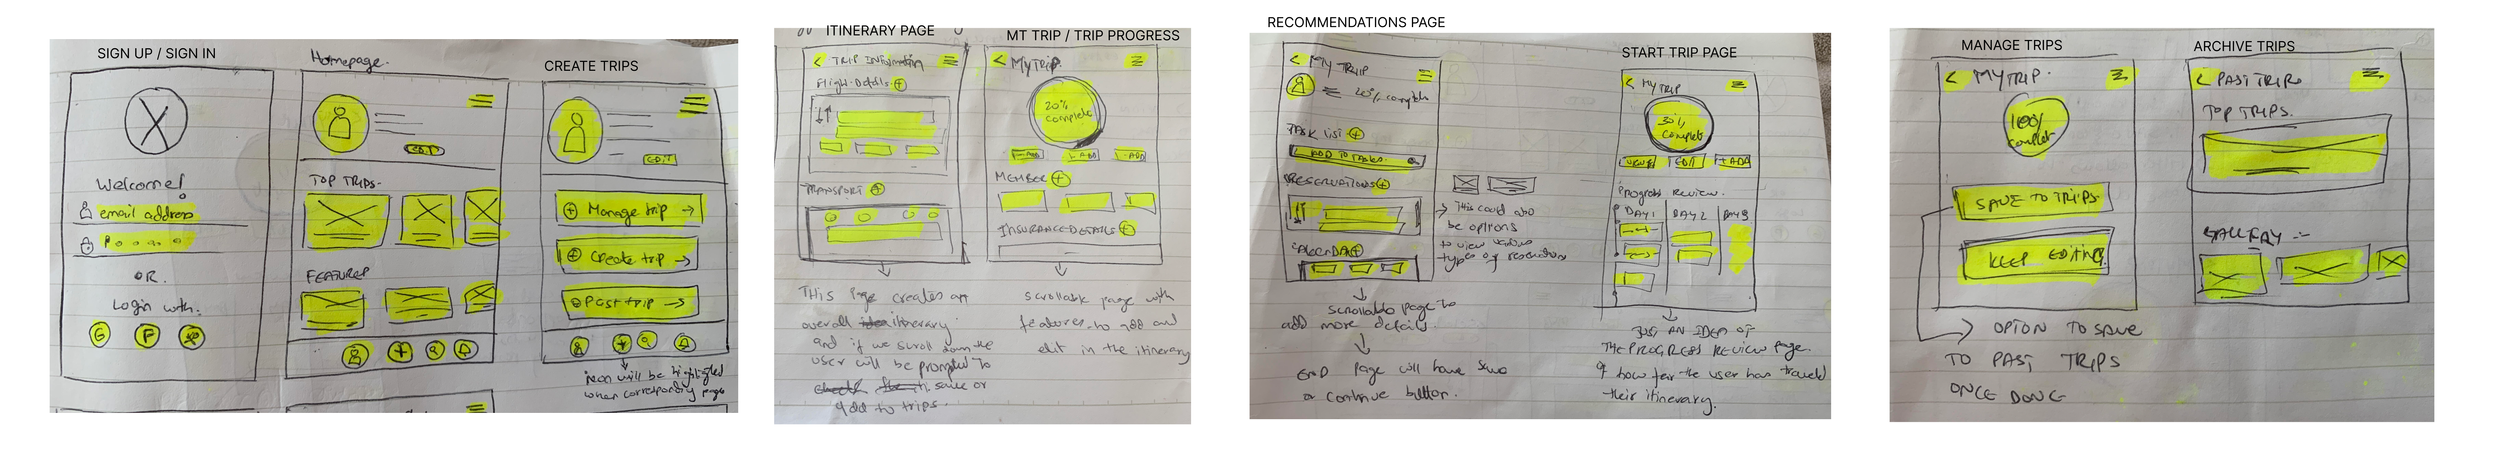 SIGN UP / SIGN IN
Welcome!
email address
P
OR.
Login with.
G
F
Homepage.
EDIT
TOP TRIPS.
FEATURED
CREATE TRIPS
EDIT
+ Manage trip →
+ Create trip →
Past trip →
icon will be highlighted
when corresponding page
ITINERARY PAGE
< TRIP INformation
Flight Details +
TRANSPORT +
THis Page creates an
overall itinerary.
and if we scroll down the
user will be prompted to
save or
Add to trips.
MT TRIP / TRIP PROGRESS
< MyTRIP.
20%
complete
+ADD +ADD +ADD
MEMBER +
INSURANCE DETAILS +
scrollable page with
features to add and
edit in the itinerary
RECOMMENDATIONS PAGE
< MY TRIP
20% complete
TASK LIST +
ADD TO TASKS
RESERVATIONS +
→ This could also
be options
to view various
types of reservations
CALENDAR +
scrollable page to
add more details.
END page will have save
or continue button.
START TRIP PAGE
< MyTRIP
30%
complete
EDIT +ADD
Progress Review.
DAY 1 DAY 2 DAY 3
JUST AN IDEA OF
THE PROGRESS REVIEW page.
of how far the user has traveled
their itinerary.
MANAGE TRIPS
< MYTRIP.
100%
complet
SAVE TO TRIPS.
KEEP EDITING.
OPTION TO SAVE
TO PAST TRIPS
ONCE DONE
ARCHIVE TRIPS
< PAST TRIPS
TOP TRIPS.
GALLERY :-